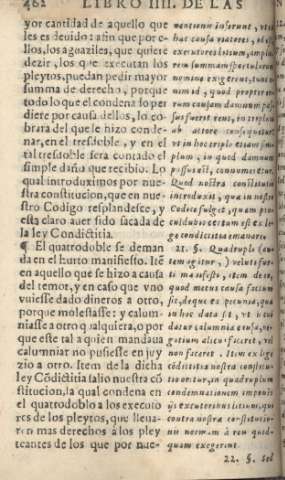 462 LIBRO IIII. DE LAS
yor cantidad de aquello que
les es deuido: afin que por e-
llos, los agoaziles, que quiere
dezir, los que executan los
pleytos, puedan pedir mayor
summa de derecho, porque
todo lo que el condenado per
diere por causa dellos, lo co-
brara del que le hizo conde-
nar, en el tresdoble, y en el
tal tresdoble sera contado el
simple daño que recibio. Lo
qual introduximos por nue-
stra constitucion, que en nue-
stro Codigo resplandesce, y
está claro auer sido sacada de
la ley Condictitia.
¶ El quatrodoble se deman
da en el hurto manifiesto. Itē
en aquello que se hizo a causa
del temor, y en caso que vno
vuiesse dado dineros a otro,
porque molestasse: y calum-
niasse a otro qualquiera, o por
que este tal a quien mandaua
calumniar no pusiesse en juy
zio a otro. Item de la dicha
ley Cōdictitia salio nuestra cō
stitucion, la qual condena en
el quattodoblo a los executo
res de los pleytos, que lleua-
ren mas derechos a los pley
teantes de los que por nue-
uentionis inserunt,
hac causa viatores, id est,
exequutores litium,
rem summam sportularum
nomine exigerent, tunc
nim id, quod propter eo-
rum causam damnum pas-
sus fuerit reus, in triplum
ab actore consequetur:
vt in hoc triplo etiam sim-
plum, in quod damnum
passus sit, connumeretur.
Quod nostra constitutio
introduxit, quae in nostro
Codice fulget, quam pro-
culdubio certum est ex le-
ge condictitia emanare.
21. §. Quadrupli
tem agitur, veluti fur-
ti manifesti, item de eo,
quod metus causa factum
sit, deque ea pecunia, quae
in hoc data sit, vt is cui
datur calumniae causa, ne-
gotium alicui faceret, vel
non faceret. Item ex lege
cōdictitia nostra constitu-
tione oritur, in quadruplum
condemnationem imponēs
ijs executoribus litium, qui
contra nostrae constitutio-
nis normam à reis quid-
quam exegerint.
22. §. Sed